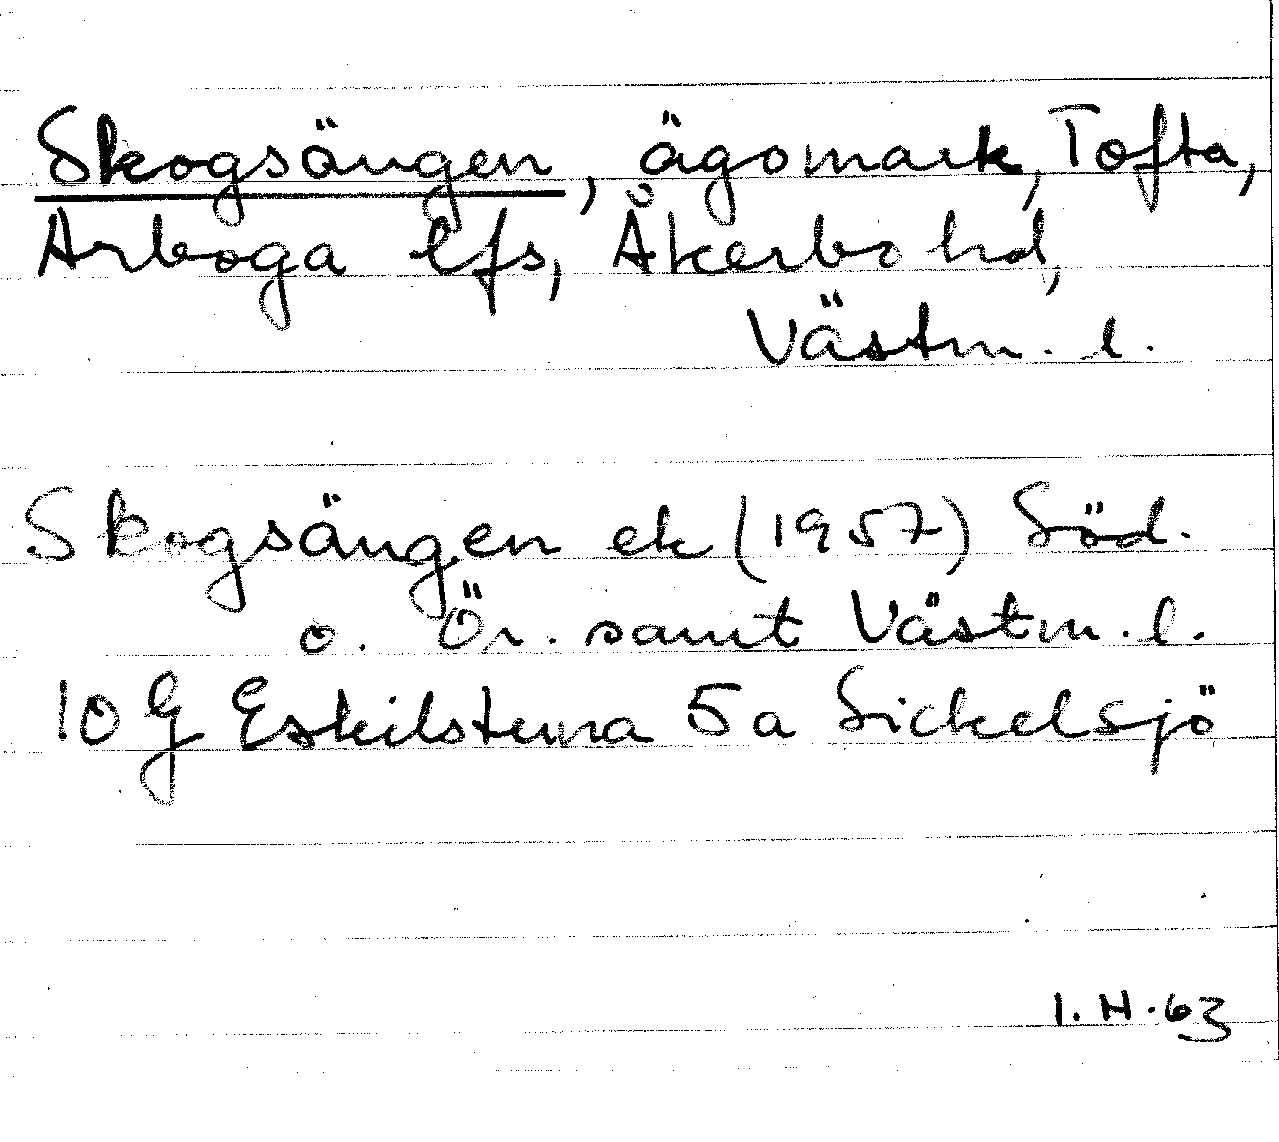 Skogsängen, ägomark, Tofta,
Arboga lfs, Åkerbo hd,
Västm. l.
Skogsängen ek (1957) Söd.
o. Ör. samt Västm. l.
10 G Eskilstuna 5a Sickelsjö
I. H. 63